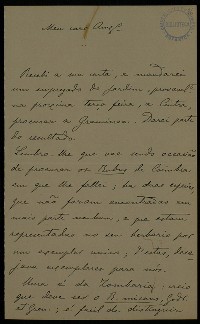 Meu caro Amgº
Recebi a sua carta, e mandarei
um empregado do Jardim, provavelmte
na proxima terça feira, a Cintra,
procurar a Graminea. Darei parte
do resultado.
Lembro-lhe que vae sendo occasião
de procurar os Rubus de Coimbra,
em que lhe fallei; ha duas especies
que não foram encontradas em
mais parte nenhum, e que estam
representadas no seu herbario por
um exemplar unico; d'estas, dese
java exemplares para nós.
Uma é da Zombaria; creio
que deve ser o R. micans, Godr.
et Gren.; é facil de distinguir